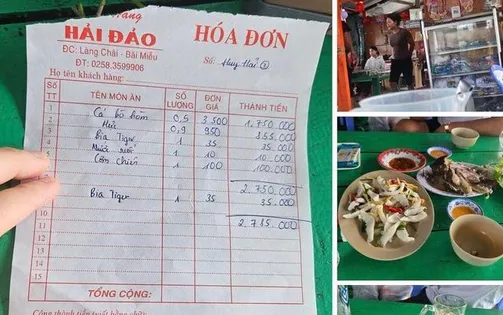 HẢI ĐẢO
HÓA ĐƠN
ĐC: Làng Chài - Bãi Miếu
ĐT: 0258.3599906
Số: Huy Hải
Họ tên khách hàng:
Số TÊN MÓN ĂN SỐ LƯỢNG ĐƠN GIÁ THÀNH TIỀN
1 Cá bò hòm 0,5 3,500 1.750.000
2 Mực 0,9 950 855.000
3 Bia Tiger 1 35 35.000
1 10 10.000
Cơm chiên 1 100 100.000
2.750.000
Bia Tiger 1 35 35.000
2.785.000
11
12
13
14
15
TỔNG CỘNG: